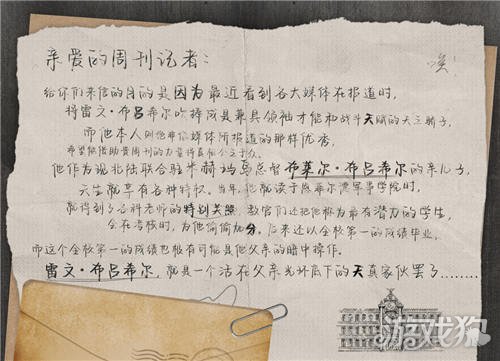 亲爱的周刊记者：
唉！
给你们来信的目的是因为最近看到各大媒体在报道时，
将雷文·布吕希尔吹捧成具兼具领袖才能和战斗天赋的天之骄子，
而他本人则他非你媒体所报道的那样优秀，
希望能借助贵周刊的力量将真相公之于众。
他作为现北陆联合驻米赫玛岛总督布莱尔·布吕希尔的亲儿子，
天生就享有各种特权，当年，他就读于 军事学院时，
就得到了各科老师的特别关照，教官们还把他称为最有潜力的学生，
会在考核时，为他偷偷加分，后来还以全校第一的成绩毕业，
而这个全校第一的成绩也极有可能是他父亲的暗中操作。
雷文·布吕希尔，就是一个活在父亲光环底下的天真家伙罢了........
游戏狗